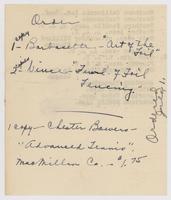 Order
copy
1 - Barbasetti - "Art of the
Foil"
2 - Vince - "Fund. of Foil
Fencing."
1 copy - Chester Bowers -
"Advanced Tennis".
MacMillan Co. - $1.75
Ordered